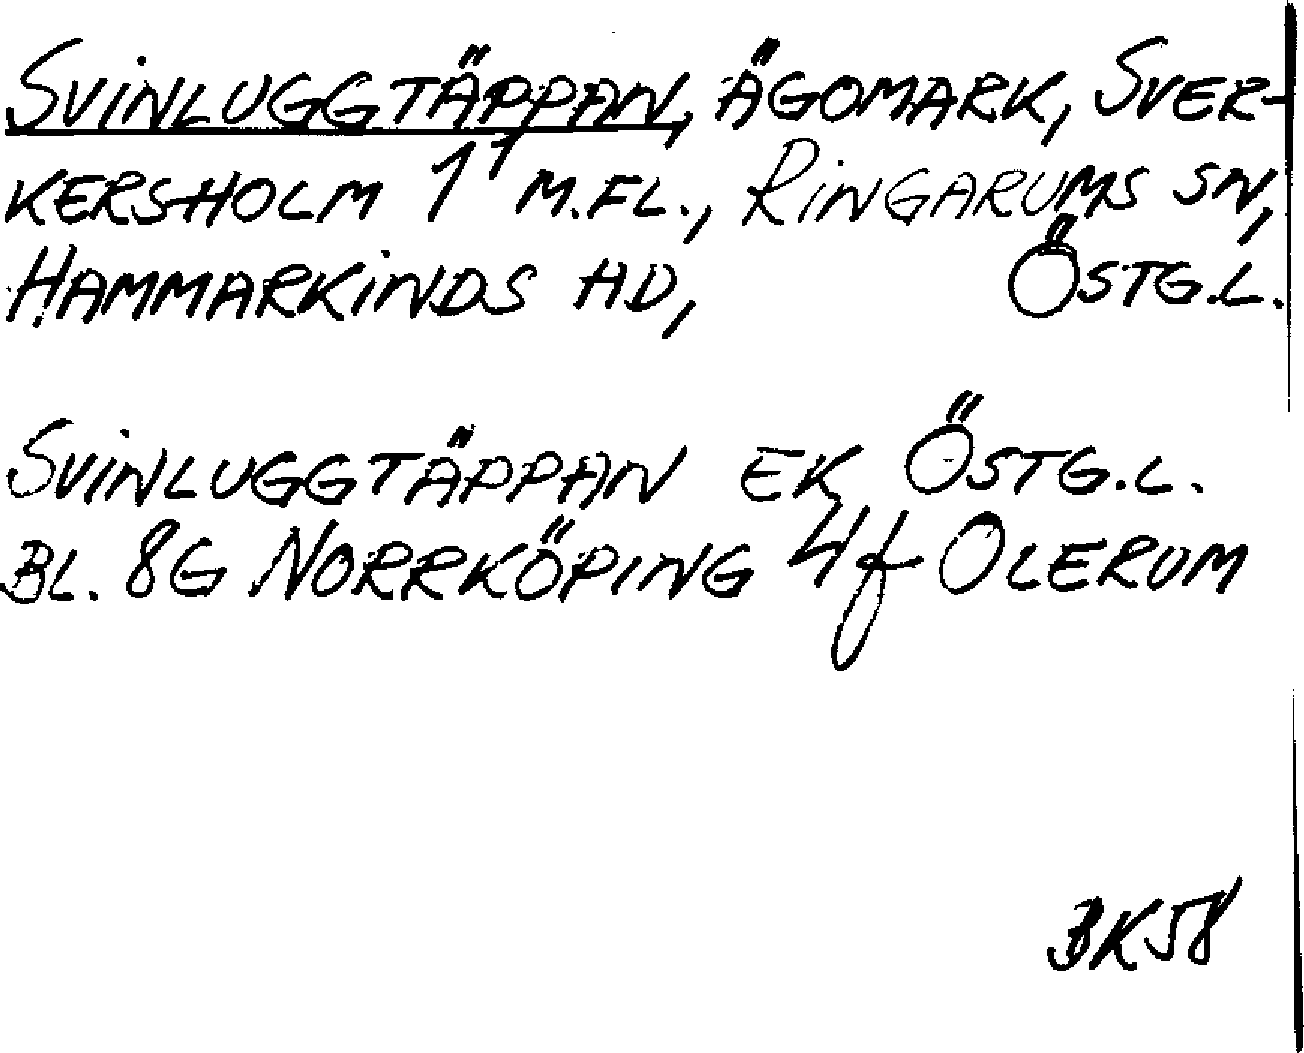 SVINLUGGTÄPPAN, ÄGOMARK, SVER-
KERSHOLM 1¹ M.FL., RINGARUMS SN,
HAMMARKINDS HD, ÖSTG.L.
SVINLUGGTÄPPAN EK ÖSTG.L.
BL. 8G NORRKÖPING 4f OLERUM
BK58